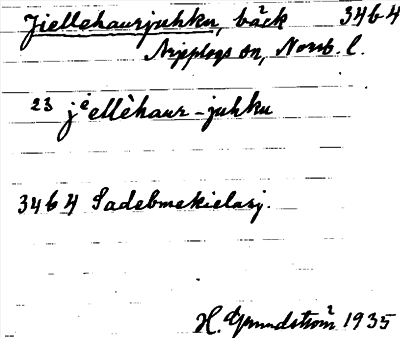 Jiellehaurjuhku, bäck 3464
Arjeplogs sn, Norrb. l.
23 jiellèhaur-juhku
3464 Sadebmekielasj.
H. Grundström 1935